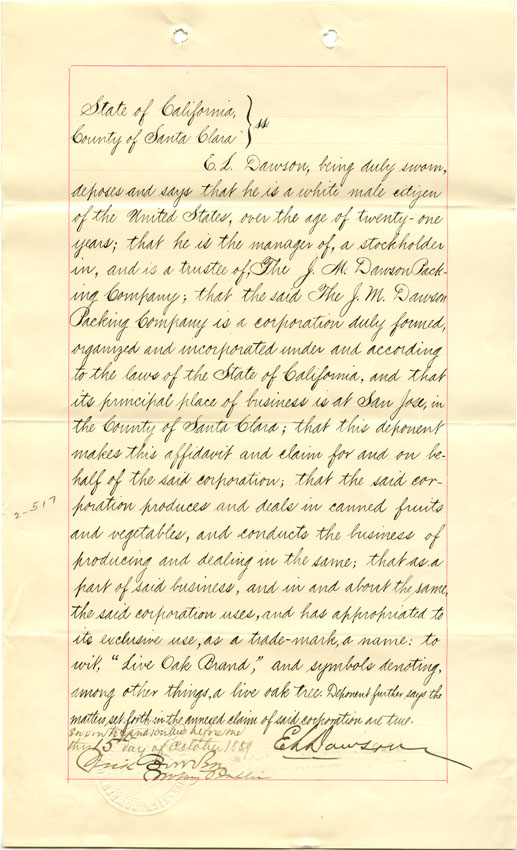 State of California,
County of Santa Clara } ss.
E. L. Dawson, being duly sworn,
deposes and says that he is a white male citizen
of the United States, over the age of twenty-one
years; that he is the manager of, a stockholder
in, and is a trustee of, The J. M. Dawson Pack-
ing Company; that the said The J. M. Dawson
Packing Company is a corporation duly formed,
organized and incorporated under and according
to the laws of the State of California, and that
its principal place of business is at San Jose, in
the County of Santa Clara; that this deponent
makes this affidavit and claim for and on be-
half of the said corporation; that the said cor-
poration produces and deals in canned fruits
2-517
and vegetables, and conducts the business of
producing and dealing in the same; that as a
part of said business, and in and about the same,
the said corporation uses, and has appropriated to
its exclusive use, as a trade-mark, a name: to
wit, "Live Oak Brand," and symbols denoting,
among other things, a live oak tree. Deponent further says the
matters, set forth in the annexed claim of said corporation are true.
Sworn to and subscribed before me
this 5th day of October 1889
E L Dawson
Notary Public